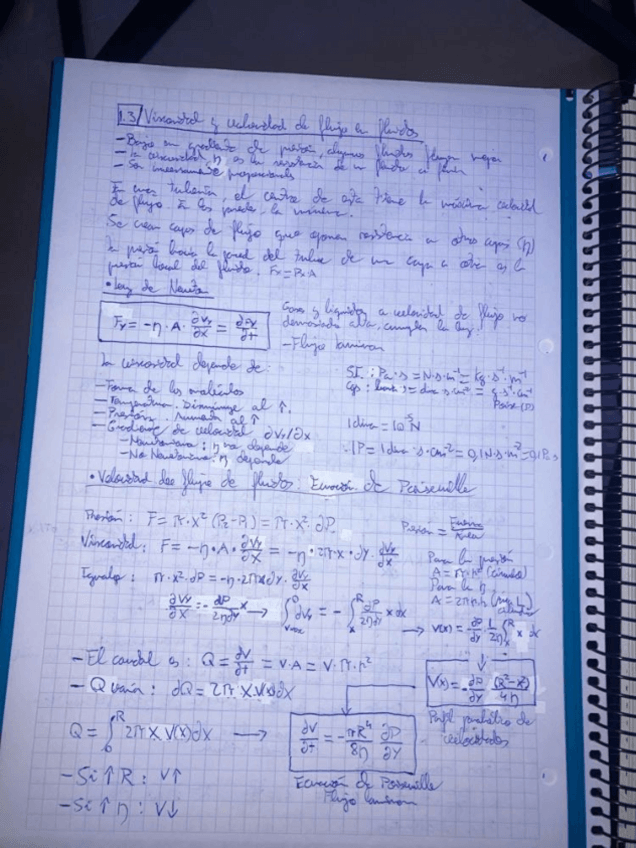 1.3/ Viscosidad y velocidad de flujo en fluidos
- Bajo un gradiente de presión, algunos fluidos fluyen mejor
- La viscosidad, η es la resistencia de un fluido a fluir
- Son inversamente proporcionales
En una tubería, el centro de esta tiene la máxima velocidad
de flujo. En las paredes, la mínima.
Se crean capas de flujo que oponen resistencia a otras capas (η)
La presión hacia la pared del tubo de una capa a otra es la
presión lineal del fluido. Fx = Px·A
• Ley de Newton
Fy = -η · A · ∂Vy/∂x = ∂Py/∂t
Gases y líquidos a velocidad de flujo no
demasiado alta, cumplen la ley:
- Flujo laminar
La viscosidad depende de:
S.I.: Pa·s = N·s·m⁻² = kg·s⁻¹·m⁻¹
- Forma de las moléculas
- Temperatura: Disminuye al ↑.
- Presión: Aumenta al ↑
1 dina = 10⁻⁵ N
- Gradiente de velocidad ∂Vy/∂x
- Newtonianos: η no depende
- No Newtonianos: η depende
- 1P = 1 dina·s·cm⁻² = 0,1 N·s·m⁻² = 0,1 Pa·s
• Velocidad de flujo de fluidos: Ecuación de Poiseuille
Presión: F = π·x²(P₂-P₁) = π·x²·∂P
Presión = Fuerza/Área
Viscosidad: F = -η·A·∂Vy/∂x = -η·2πx·∂y·∂Vy/∂x
Para la presión
A = π·r² (círculo)
Igualar: π·x²·∂P = -η·2πx∂y·∂Vy/∂x
Para la η
∂Vy/∂x = -∂P/2η∂y x → ∫ ∂Vy = -∫ₓᴿ ∂P/2η∂y x∂x
→ V(x) = ∂P/∂y 1/2η ∫ₓᴿ x dx
- El caudal es: Q = ∂V/∂t = V·A = V·π·r²
- Q varía: ∂Q = 2πxV(x)∂x
V(x) = -∂P/∂y (R²-x²)/4η
Perfil parabólico de
velocidades
Q = ∫₀ᴿ 2πxV(x)∂x → ∂V/∂t = -πR⁴/8η ∂P/∂y
Ecuación de Poiseuille
Flujo laminar
- Si ↑ R: V↑
- Si ↑ η: V↓